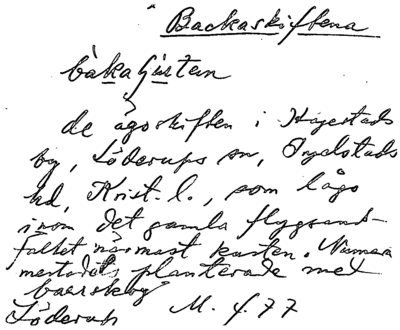 Backaskiftena
bàkaʃistan
de ägoskiften i Hagestads
by, Löderups sn, Ingelstads
hd, Krist. l., som lågo
inom det gamla flygsand-
fältet närmast kusten. Numera
mestadels planterade med
barrskog
Löderup M. f. 77